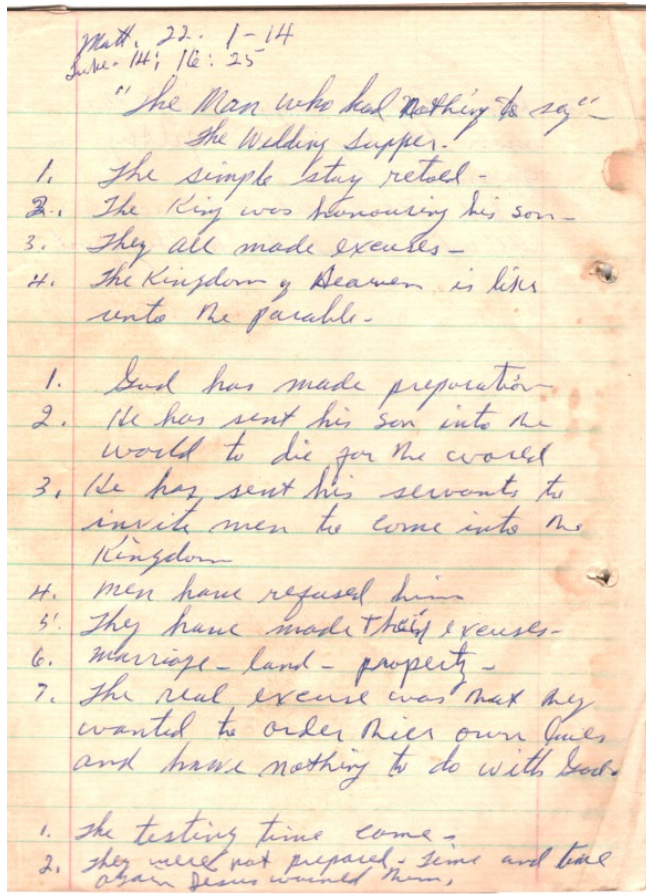 Matt. 22. 1-14
Luke. 14; 16: 25
"The Man who had Nothing to say"-
The Wedding Supper.
1. The simple story retold-
2. The King was honouring his son-
3. They all made excuses-
4. The Kingdom of Heaven is like
unto the parable-
1. God has made preparation
2. He has sent his son into the
world to die for the world
3. He has sent his servants to
invite men to come into the
Kingdom
4. men have refused him
5. They have made their excuses-
6. marriage - land - property-
7. The real excuse was that they
wanted to order thier own lives
and have nothing to do with God.
1. The testing time came-
2. They were not prepared - time and time
again Jesus warned them,